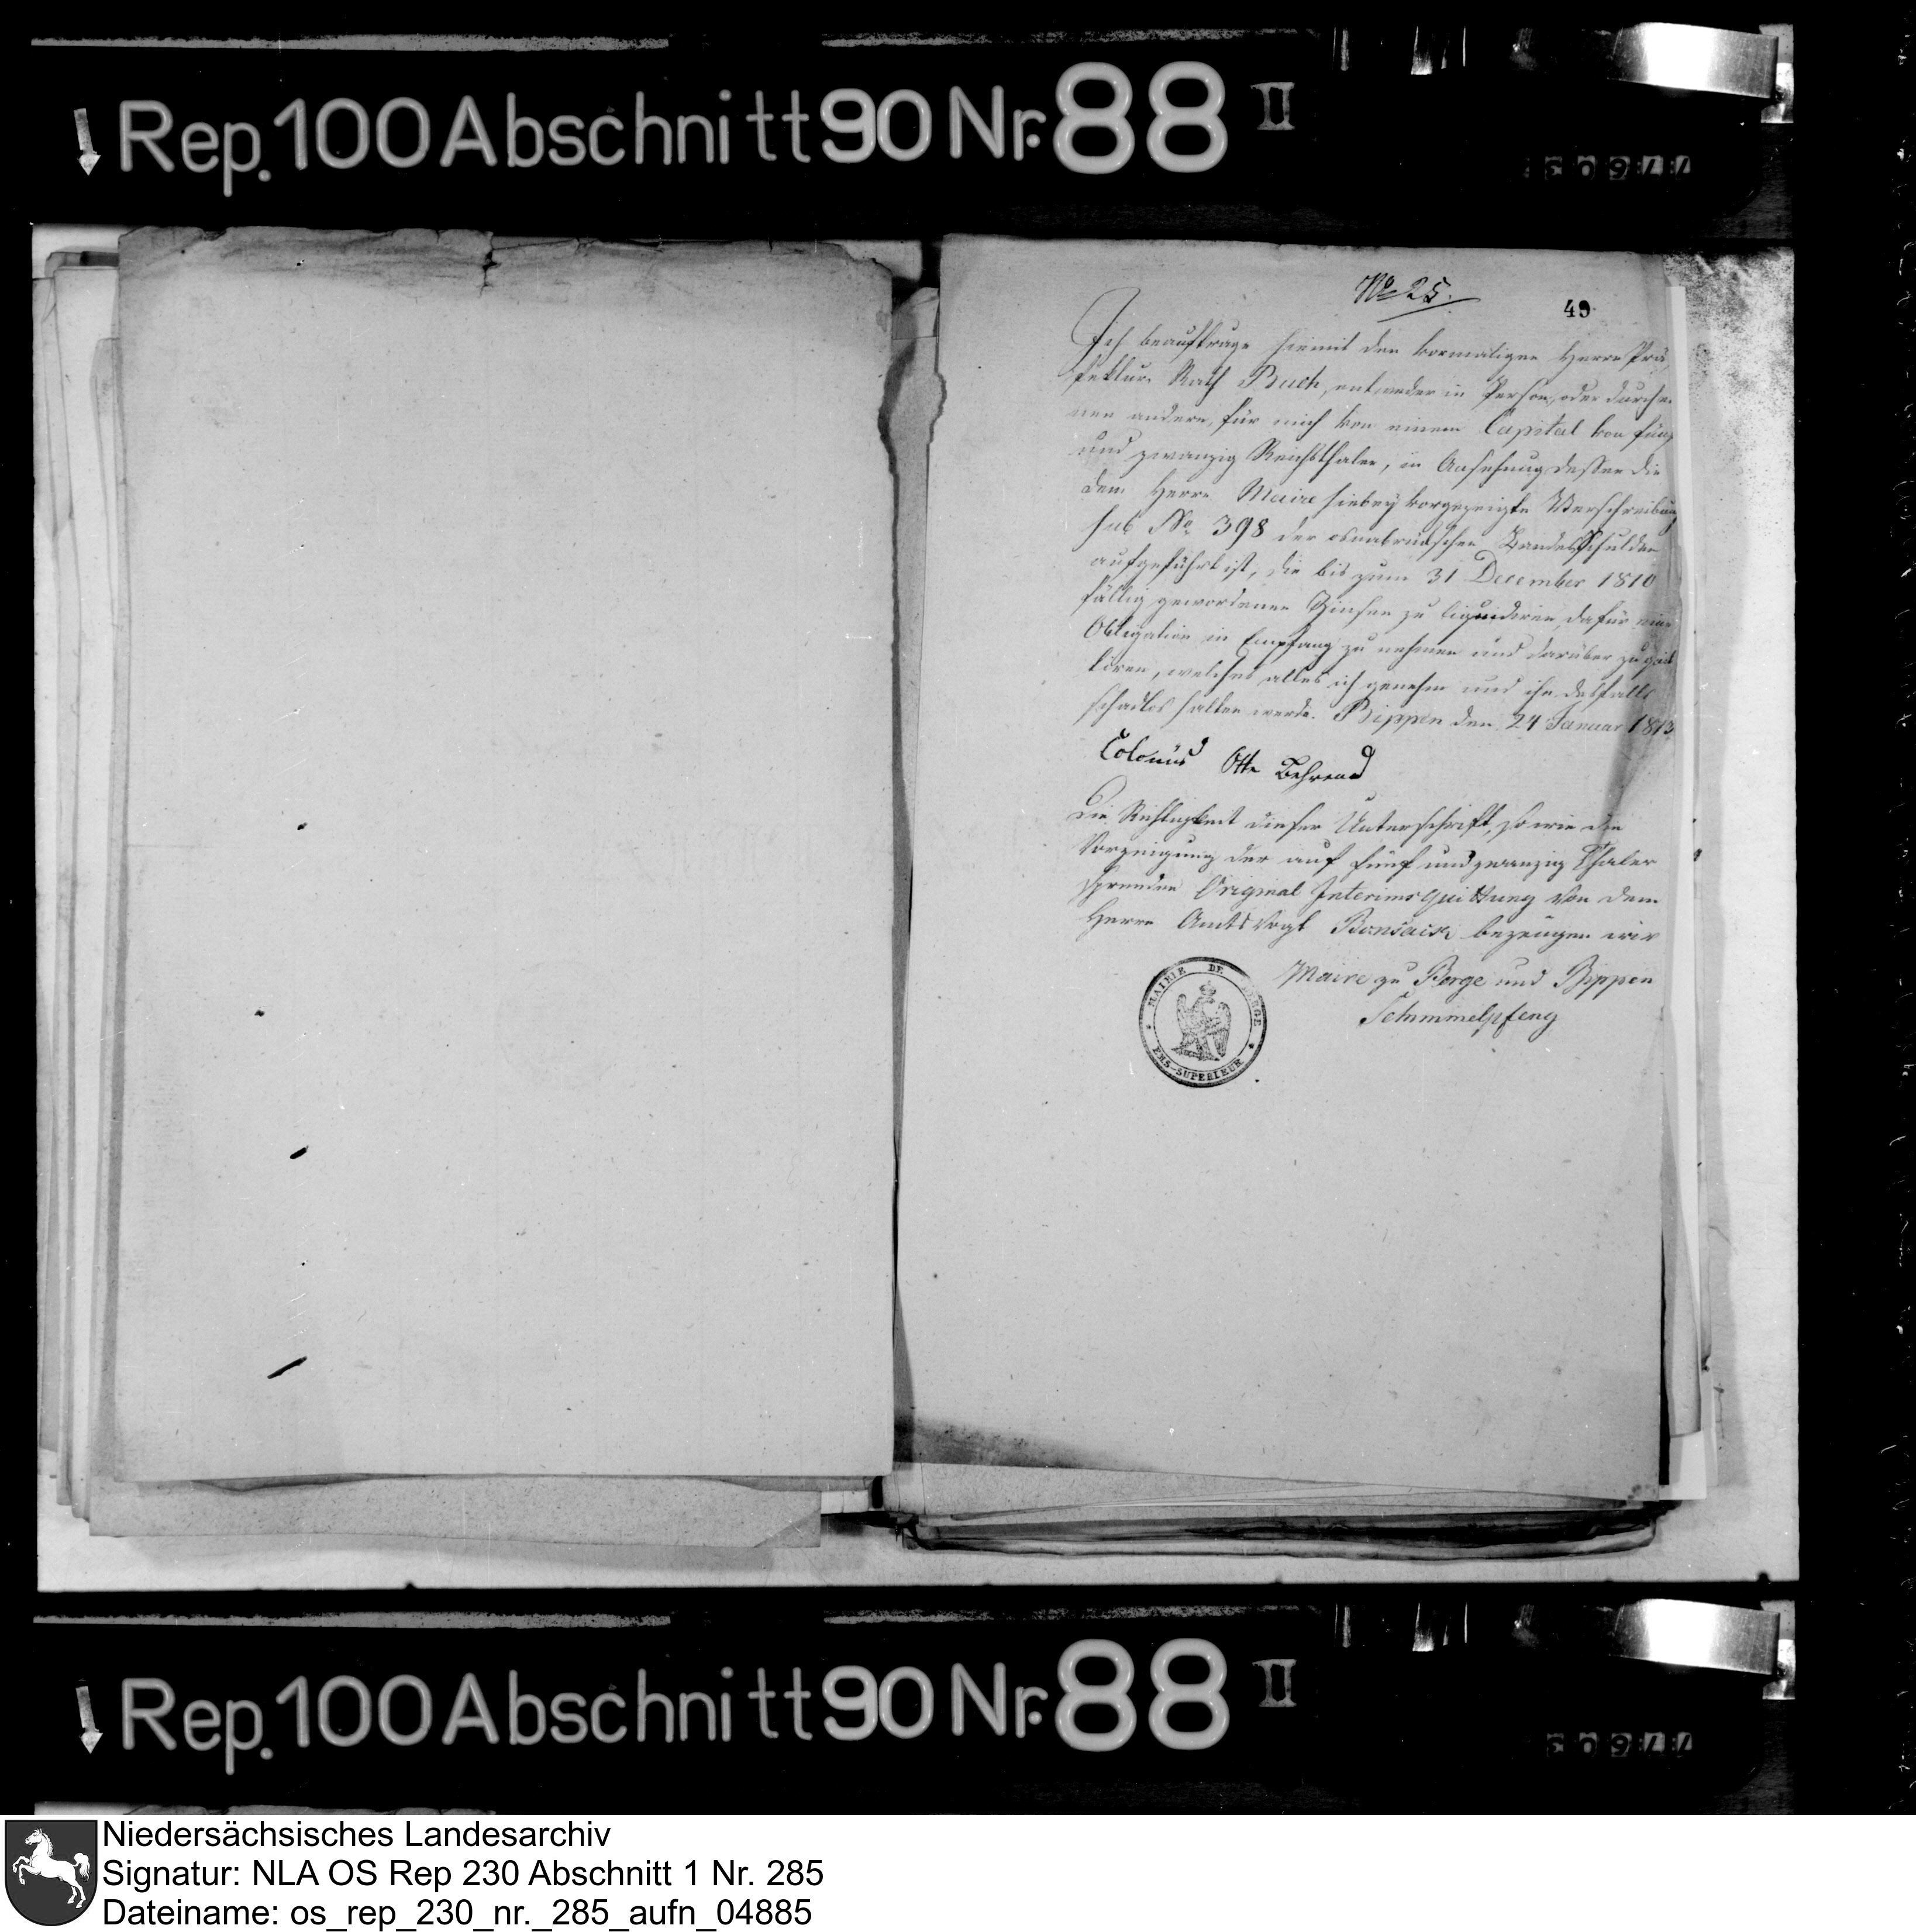 Rep. 100 Abschnitt 90 Nr. 88 II
77603
No 25.
49
Ich beauftrage hiemit den vormaligen Herrn Prä
fektur Rath Buch, entweder in Person, oder durch ei
nen andern, für mich von einem Capital von fünf
und zwanzig Reichsthaler, in Ansehung dessen die
dem Herrn Maire hiebey vorgezeigte Verschreibung
sub No 398 der osnabrückschen Landesschulden
aufgeführt ist, die bis zum 31 December 1810
fällig gewordenen Zinsen zu liquidiren dafür eine
Obligation in Empfang zu nehmen und darüber zu quit
tiren, welches alles ich genehm und ihn desfalls
schadlos halten werde. Bippen den 24 Januar 1813
Colonus Otto Behrend
Die Richtigkeit dieser Unterschrift, so wie die
Vorzeigung der auf fünf und zwanzig Thaler
Original Interims Quittung von dem
Herrn Amts Vogt bezeugen wir
Maire zu Berge und Bippen
Schimmelpfeng
MAIRIE DE BERGE
EMS-SUPERIEUR
Rep. 100 Abschnitt 90 Nr. 88 II
77603
Niedersächsisches Landesarchiv
Signatur: NLA OS Rep 230 Abschnitt 1 Nr. 285
Dateiname: os_rep_230_nr._285_aufn_04885